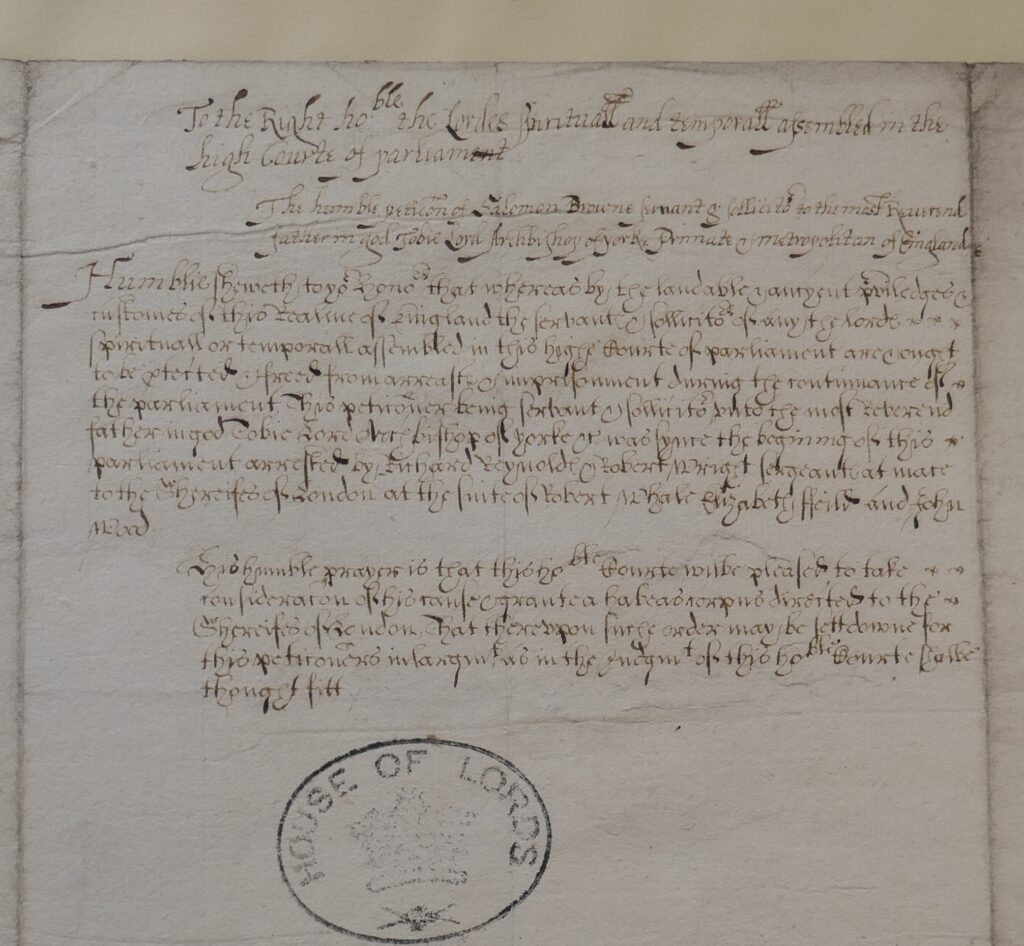 To the Right ho:ble the Lordes Spirituall and temporall assembled in the
high Courte of parliament
The humble peticōn of Salomon Browne servant & sollicitor to the most Reverend
father in god Tobie Lord Archbishop of yorke Primate & metropolitan of England
Humblie sheweth to yor Honors that whereas by the laudable & auncyent priviledges &
customes of this Realme of England the servants & sollicitors of any the lords
spirituall or temporall assembled in this highe Courte of parliament are & ought
to be ptected & freed from arreasts & imprisonment during the continuance of
the parliament, This peticōner being servant & sollicitor unto the most Reverend
father in god Tobie Lord Archbishop of yorke &c was synce the begining of this
parliament arrested by Richard Reynolds & Robert Wright sergeants at mace
to the Shereifes of London at the suite of Robert Whale Elizabeth ffeild and John
Wood
His humble prayer is that this hoble Courte wilbe pleased to take
consideracōn of his cause & grante a habeas corpus directed to the
Shereifes of London, That therevpon suche order may be sett downe for
this peticōners inlargmt as in the Judgmt of this hoble Courte shalbe
thought fitt
HOUSE OF LORDS